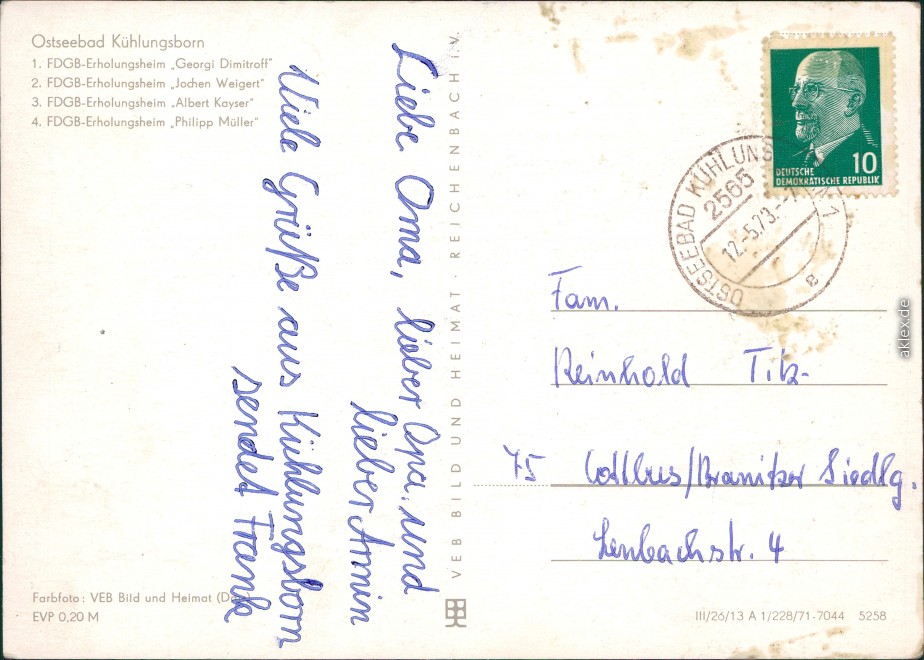 Ostseebad Kühlungsborn
1. FDGB-Erholungsheim „Georgi Dimitroff"
2. FDGB-Erholungsheim „Jochen Weigert"
3. FDGB-Erholungsheim „Albert Kayser"
4. FDGB-Erholungsheim „Philipp Müller"
Liebe Oma, lieber Opa, und
lieber Armin
Viele Grüße aus Kühlungsborn
sendet Frank
Farbfoto: VEB Bild und Heimat
EVP 0,20 M
VEB BILD UND HEIMAT · REICHENBACH i. V.
10
DEUTSCHE
DEMOKRATISCHE REPUBLIK
OSTSEEBAD KÜHLUNGS
2565
12.-5.73.
a
Fam.
Reinhold
75 Cottbus/Branitzer Siedlg.
Lenbachstr. 4
III/26/13 A 1/228/71-7044 5258
aklex.de